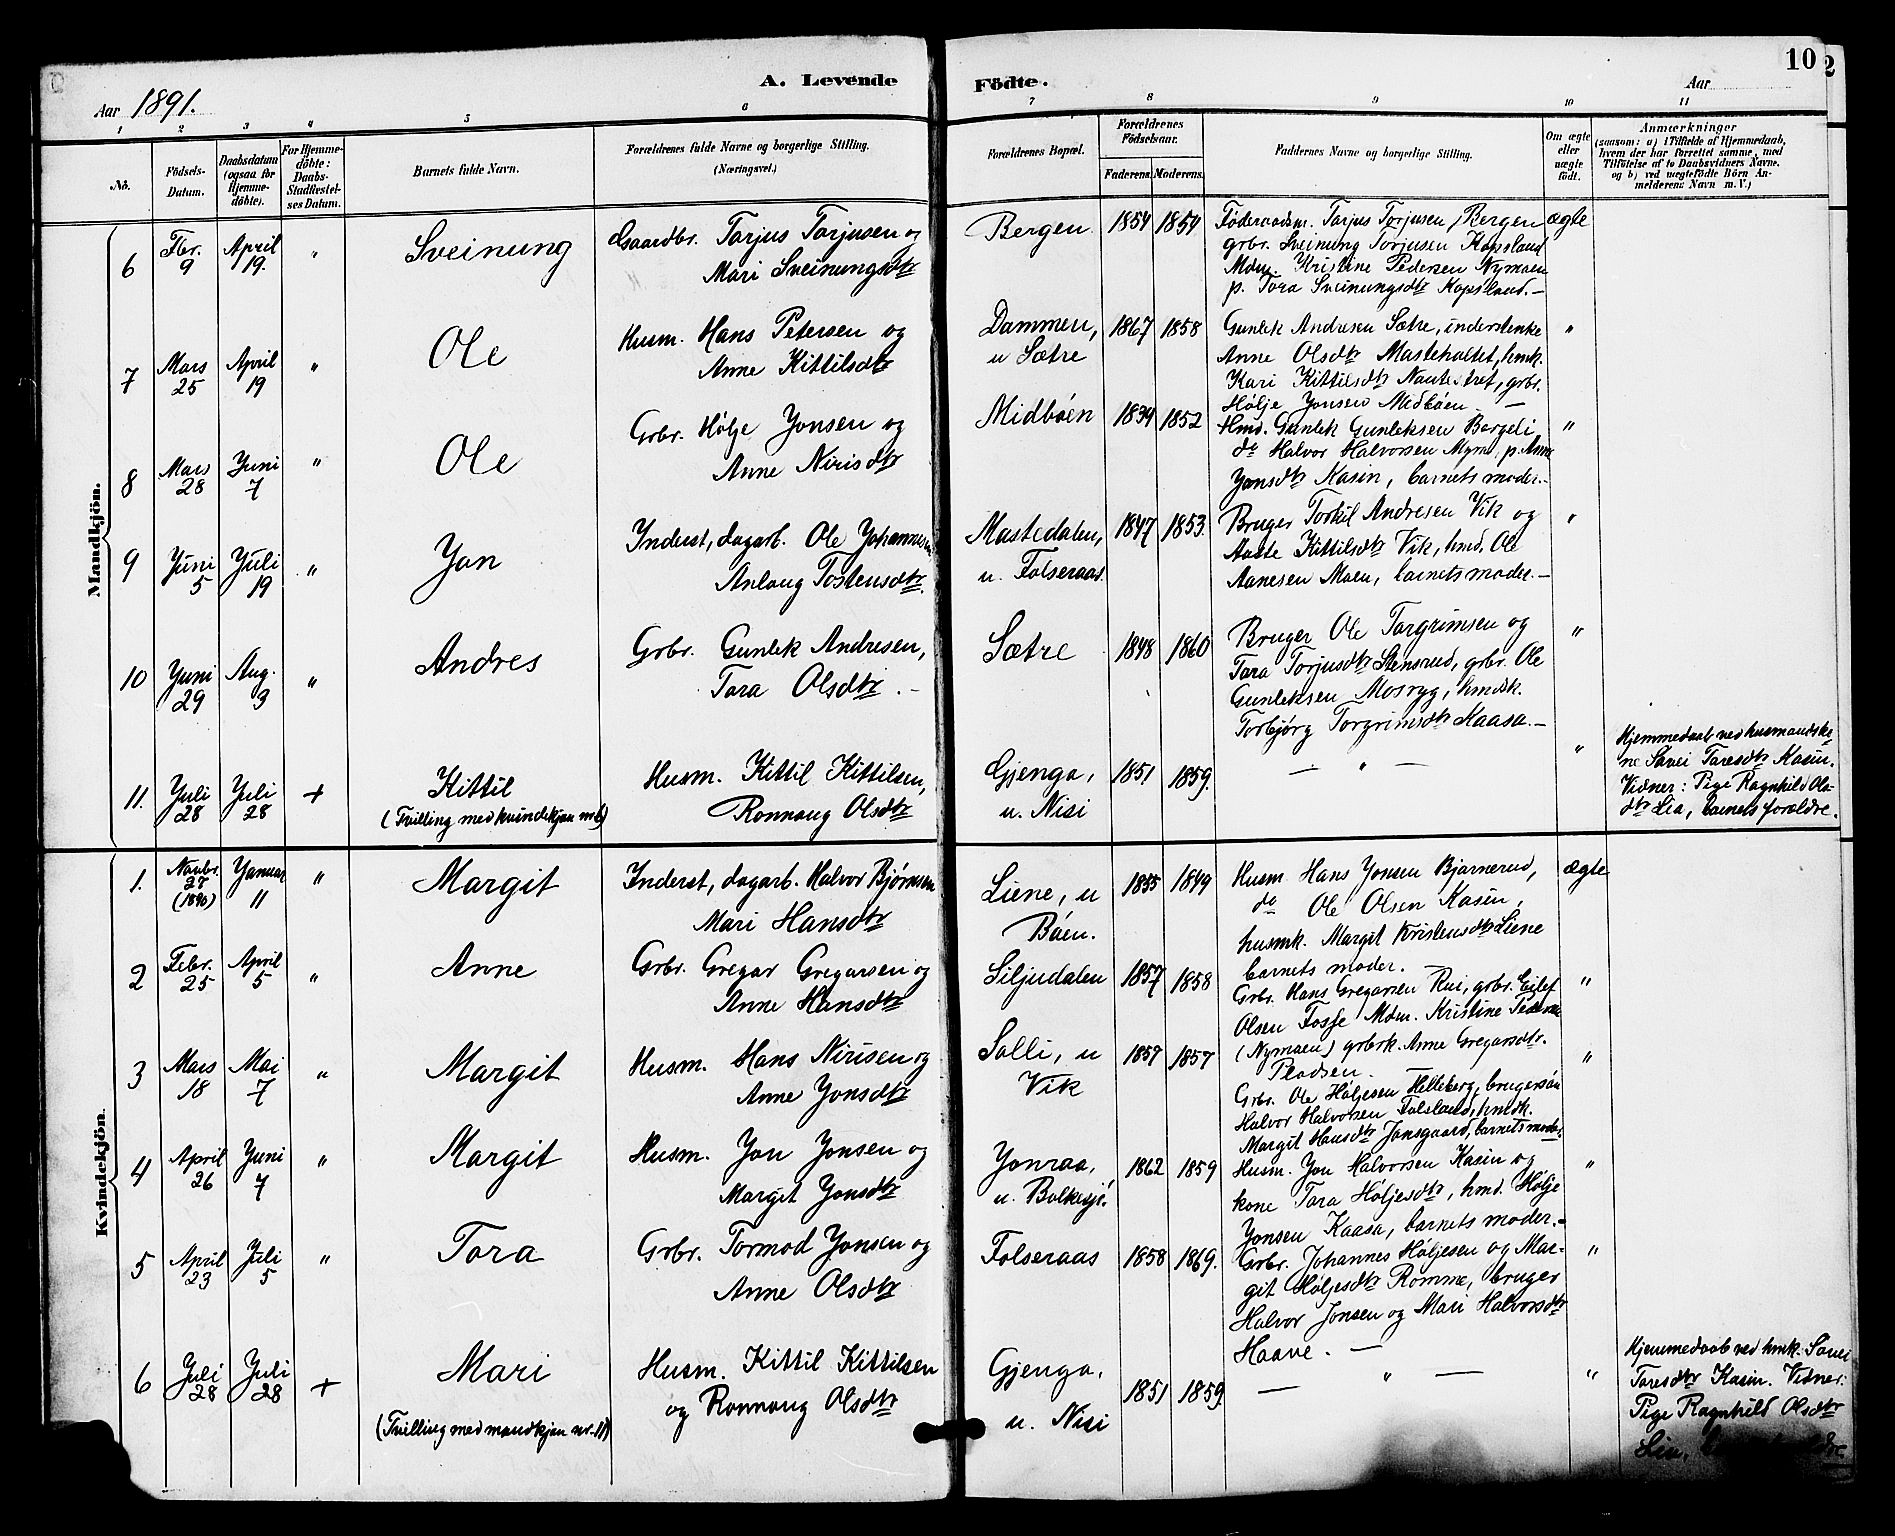 A. Levende Födte.
10
2
Aar 1891.
Aar
1 2 3 4 5 6 7 8 9 10 11
No.
Födsels-
Datum.
Daabsdatum
(ogsaa for
Hjemme-
döbte).
For Hjemme-
döbte:
Daabs-
Stadfæstel-
ses Datum.
Barnets fulde Navn.
Forældrenes fulde Navne og borgerlige Stilling.
(Næringsvei.)
Forældrenes Bopæl.
Forældrenes
Födselsaar.
Faderens. Moderens.
Faddernes Navne og borgerlige Stilling.
Om ægte
eller
uægte
födt.
Anmærkninger
(saasom: a) i Tilfælde af Hjemmedaab,
hvem der har forrettet samme, med
Tilföielse af to Daabsvidners Navne,
og b) ved uægtefödte Börn An-
melderens Navn m. V.)
Mandkjön.
6 Fbr. 9 April 19. " Sveinung
Gaardbr. Tarjus Tarjusen og
Mari Sveinungsdtr
Bergen 1854 1854
Føderaadsm. Tarjus Torjusen, Bergen
grbr. Sveinung Torjusen Kopsland
Mdm. Kristine Pedersen Nymoen
p. Tora Sveinungsdtr Kopsland.—
ægte
7 Mars 25 April 19 " Ole
Husm. Hans Petersen og
Anne Kittilsdtr
Dammen,
u Sætre
1867 1858
Gunlek Andresen Sætre, inderstenke
Anne Olsdtr Masteholtet, hmk.
Kari Kittilsdtr , grbr.
Hølje Jonsen Midbøen —
"
8 Mars 28 Juni 7 " Ole
Grbr. Hølje Yonsen og
Anne Nirisdtr
Midbøen 1834 1852
Hmd. Gunlek Gunleksen Bergeli
do Halvor Halvorsen , p. Anne
Yonsdtr Kasin, barnets moder.—
"
9 Yuni 5 Yuli 19 " Yon
Inderst, dagarb. Ole Johannesen
Anlaug Tostensdtr.
Mastedalen,
u. Folseraas.
1847 1853.
Bruger Torkil Andresen Vik og
Aaste Kittilsdtr Vik, hmd. Ole
Aanesen Moen, barnets moder.—
"
10 Yuni 29 Aug. 3 " Andres
Grbr. Gunlek Andresen,
Tora Olsdtr.—
Sætre 1848 1860
Bruger Ole Torgrimsen og
Tora Torjusdtr Stensrud, grbr. Ole
Gunleksen Mosryg, hmdsk.
Torbjørg Torgrimsdtr Kaasa.—
"
11. Yuli 28 Yuli 28 + Kittil
(Tvilling med kvindekjøn nr 6)
Husm. Kittil Kittilsen,
Ronnaug Olsdtr
Gjenga,
u. Nisi
1851 1859.
— " —
"
Hjemmedaab ved husmandsko-
ne Sanei Taresdtr Kasin.
Vidner: Pige Ragnhild Ols-
dtr Lia, barnets forældre.
Kvindekjön.
1. Novbr. 27 (1890) Yanuar 11 " Margit
Inderst, dagarb. Halvor Bjørnsen
Mari Hansdtr
Liene, u
Bøen.
1855 1849
Husm Hans Yonsen Bjørnerud,
do Ole Olsen Kasin,
husmk. Margit Kristensdtr Liene
barnets moder.—
ægte
2 Febr. 25 April 5 " Anne
Grbr. Gregar Gregarsen og
Anne Hansdtr
Siljudalen 1857 1858
Grbr. Hans Gregarsen Rui, grbr. Eilef
Olsen Fosse Mdm. Kristine Pedersen
(Nymoen) grbrk. Anne Gregarsdtr.
Pladsen.
"
3 Mars 18 Mai 7 " Margit
Husm. Hans Nirisen og
Anne Yonsdtr
Solli, u
Vik
1857 1857
Grbr. Ole Høljesen Helleberg, brugersøn
Halvor Halvorsen Folsland, hmdk.
Margit Hansdtr Jonsgaard, barnets moder.
"
4 April 26 Yuni 7 " Margit
Husm. Yon Yonsen og
Margit Yonsdtr
Yonraa,
u. Bolkesjø.
1862 1859
Husm. Yon Halvorsen Kasin og
kone Tora Høljesdtr, hmd. Hølje
Yonsen Kaasa, barnets moder.—
"
5 April 23 Juli 5 " Tora
Grbr. Tormod Yonsen og
Anne Olsdtr
Folseraas 1858 1869.
Grbr. Johannes Høljesen og Mar-
git Høljesdtr Romme, bruger
Halvor Jonsen og Mari Halvorsdtr
Haave.—
"
6 Yuli 28 Yuli 28 + Mari
(Tvilling med mandkjøn nr. 11)
Husm. Kittil Kittilsen
og Ronnaug Olsdtr
Gjenga,
u. Nisi
1851 1859
— " —
"
Hjemmedaab ved hmk. Sanei
Taresdtr Kasin. Vidner:
Pige Ragnhild Olsdtr
Lia,